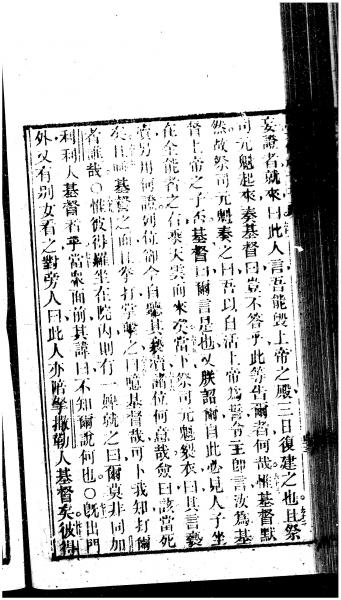 妄證者就來曰此人言吾能毀上帝之殿三日復建之也且祭
司元魁起來奏基督曰豈不答乎此等告爾者何哉惟基督默
然故祭司元魁奏之曰吾以自活上帝爲誓令主即言汝爲基
督上帝之子否基督曰爾言是也又朕詔爾自此必見人子坐
在全能者之右乘天雲而來次當下祭司元魁裂衣曰其言褻
瀆另用何證列位卽今自聽其褻瀆諸位何意哉僉曰該當死
矣且唾基督之面且拳打掌擊之曰噫基督哉可卜我知打爾
者誰哉〇惟彼得羅坐在院內則有一婢就之曰爾莫非同加
利利人基督者乎當衆面前其諱曰不知爾說何也〇旣出門
外又有別女看之對旁人曰此人亦陪拏撒勒人基督矣彼得